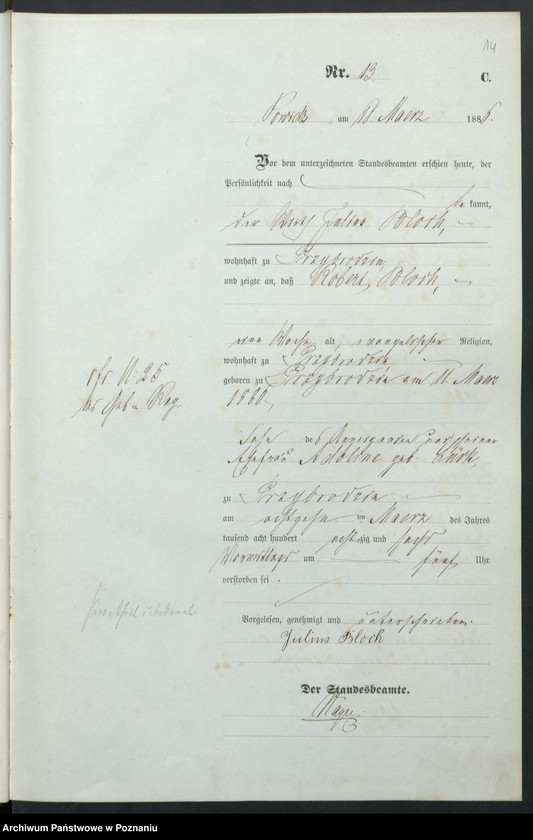 14
Nr. 13
C.
Powidz am 18 Maerz 1886.
Vor dem unterzeichneten Standesbeamten erschien heute, der
Persönlichkeit nach
be kannt,
der Wirth Julius Bloch,
wohnhaft zu Przybrodzin
und zeigte an, daß Robert Bloch,
eine Woche alt, evangelischer Religion,
wohnhaft zu Przybrodzin
geboren zu Przybrodzin am 11. Maerz
1886,
Sohn des Anzeigenden und seiner
Ehefrau geb.
zu Przybrodzin
am achtzehnten Maerz des Jahres
tausend acht hundert achtzig und sechs
Vormittags um fünf Uhr
verstorben sei.
Vorgelesen, genehmigt und unterschrieben.
Julius Bloch
Der Standesbeamte.
cfr. N: 25
des Geb. Reg.
Archiwum Państwowe w Poznaniu